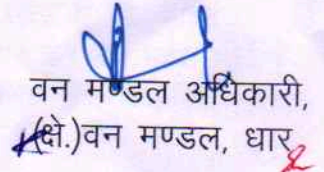 वन मण्डल अधिकारी,
(क्षे.)वन मण्डल, धार